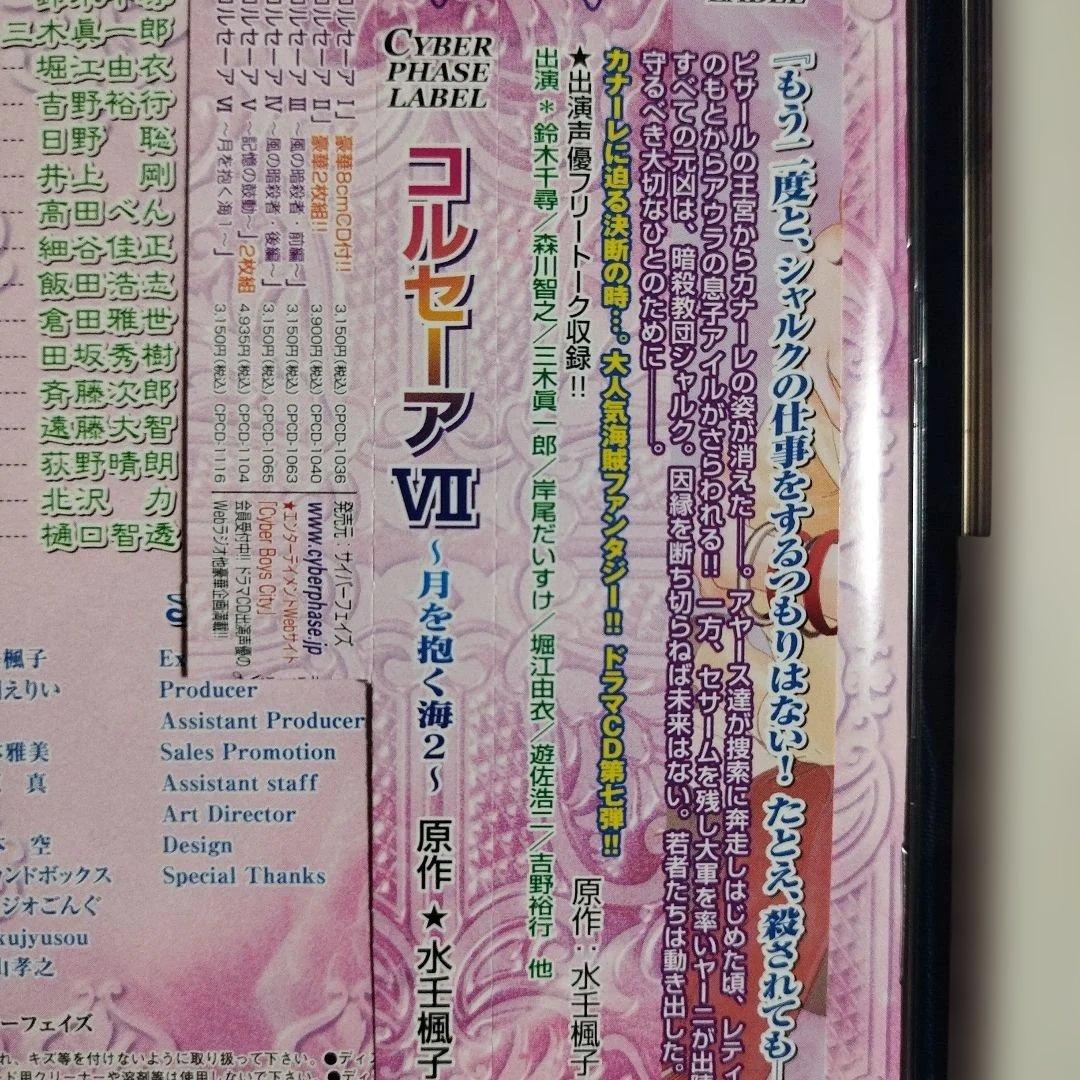 『もう二度と、シャルクの仕事をするつもりはない！ たとえ、殺されても――
ピサールの王宮からカナーレの姿が消えた――。アヤース達が捜索に奔走しはじめた頃、レディ
のもとからアウラの息子アイルがさらわれる!! 一方、セザームを残し大軍を率いヤーニが出陣
すべての元凶は、暗殺教団シャルク。因縁を断ち切らねば未来はない。若者たちは動き出した。
守るべき大切なひとのために――。
カナーレに迫る決断の時…。大人気海賊ファンタジー!! ドラマCD第七弾!!
★出演声優フリートーク収録!!
原作：水壬楓子
出演＊鈴木千尋／森川智之／三木眞一郎／岸尾だいすけ／堀江由衣／遊佐浩二／吉野裕行 他
LABEL
CYBER
PHASE
LABEL
コルセーア VII ～月を抱く海２～ 原作★水壬楓子
コルセーア I 豪華8cmCD付!! 3,150円(税込) CPCD-1036
コルセーア II 豪華2枚組!! 3,900円(税込) CPCD-1040
コルセーア III ～風の暗殺者・前編～」 3,150円(税込) CPCD-1063
コルセーア IV ～風の暗殺者・後編～」 3,150円(税込) CPCD-1065
コルセーア V ～記憶の鼓動～」2枚組 4,935円(税込) CPCD-1104
コルセーア VI ～月を抱く海1～」 3,150円(税込) CPCD-1116
発売元：サイバーフェイズ
www.cyberphase.jp
★エンターテイメントWebサイト
「Cyber Boys City」
会員受付中!! ドラマCD出演声優の
Webラジオ他豪華企画満載!!
三木眞一郎
堀江由衣
吉野裕行
日野 聡
井上 剛
高田べん
細谷佳正
飯田浩志
倉田雅世
田坂秀樹
斉藤次郎
遠藤大智
荻野晴朗
北沢 力
樋口智透
楓子 Ex
えりい Producer
Assistant Producer
雅美 Sales Promotion
真 Assistant staff
Art Director
空 Design
ンドボックス Special Thanks
ジオごんぐ
kujyusou
山孝之
ーフェイズ
れ、キズ等を付けないように取り扱って下さい。●ディス
ド用クリーナーや溶剤等は使用しないで下さい。●ディ